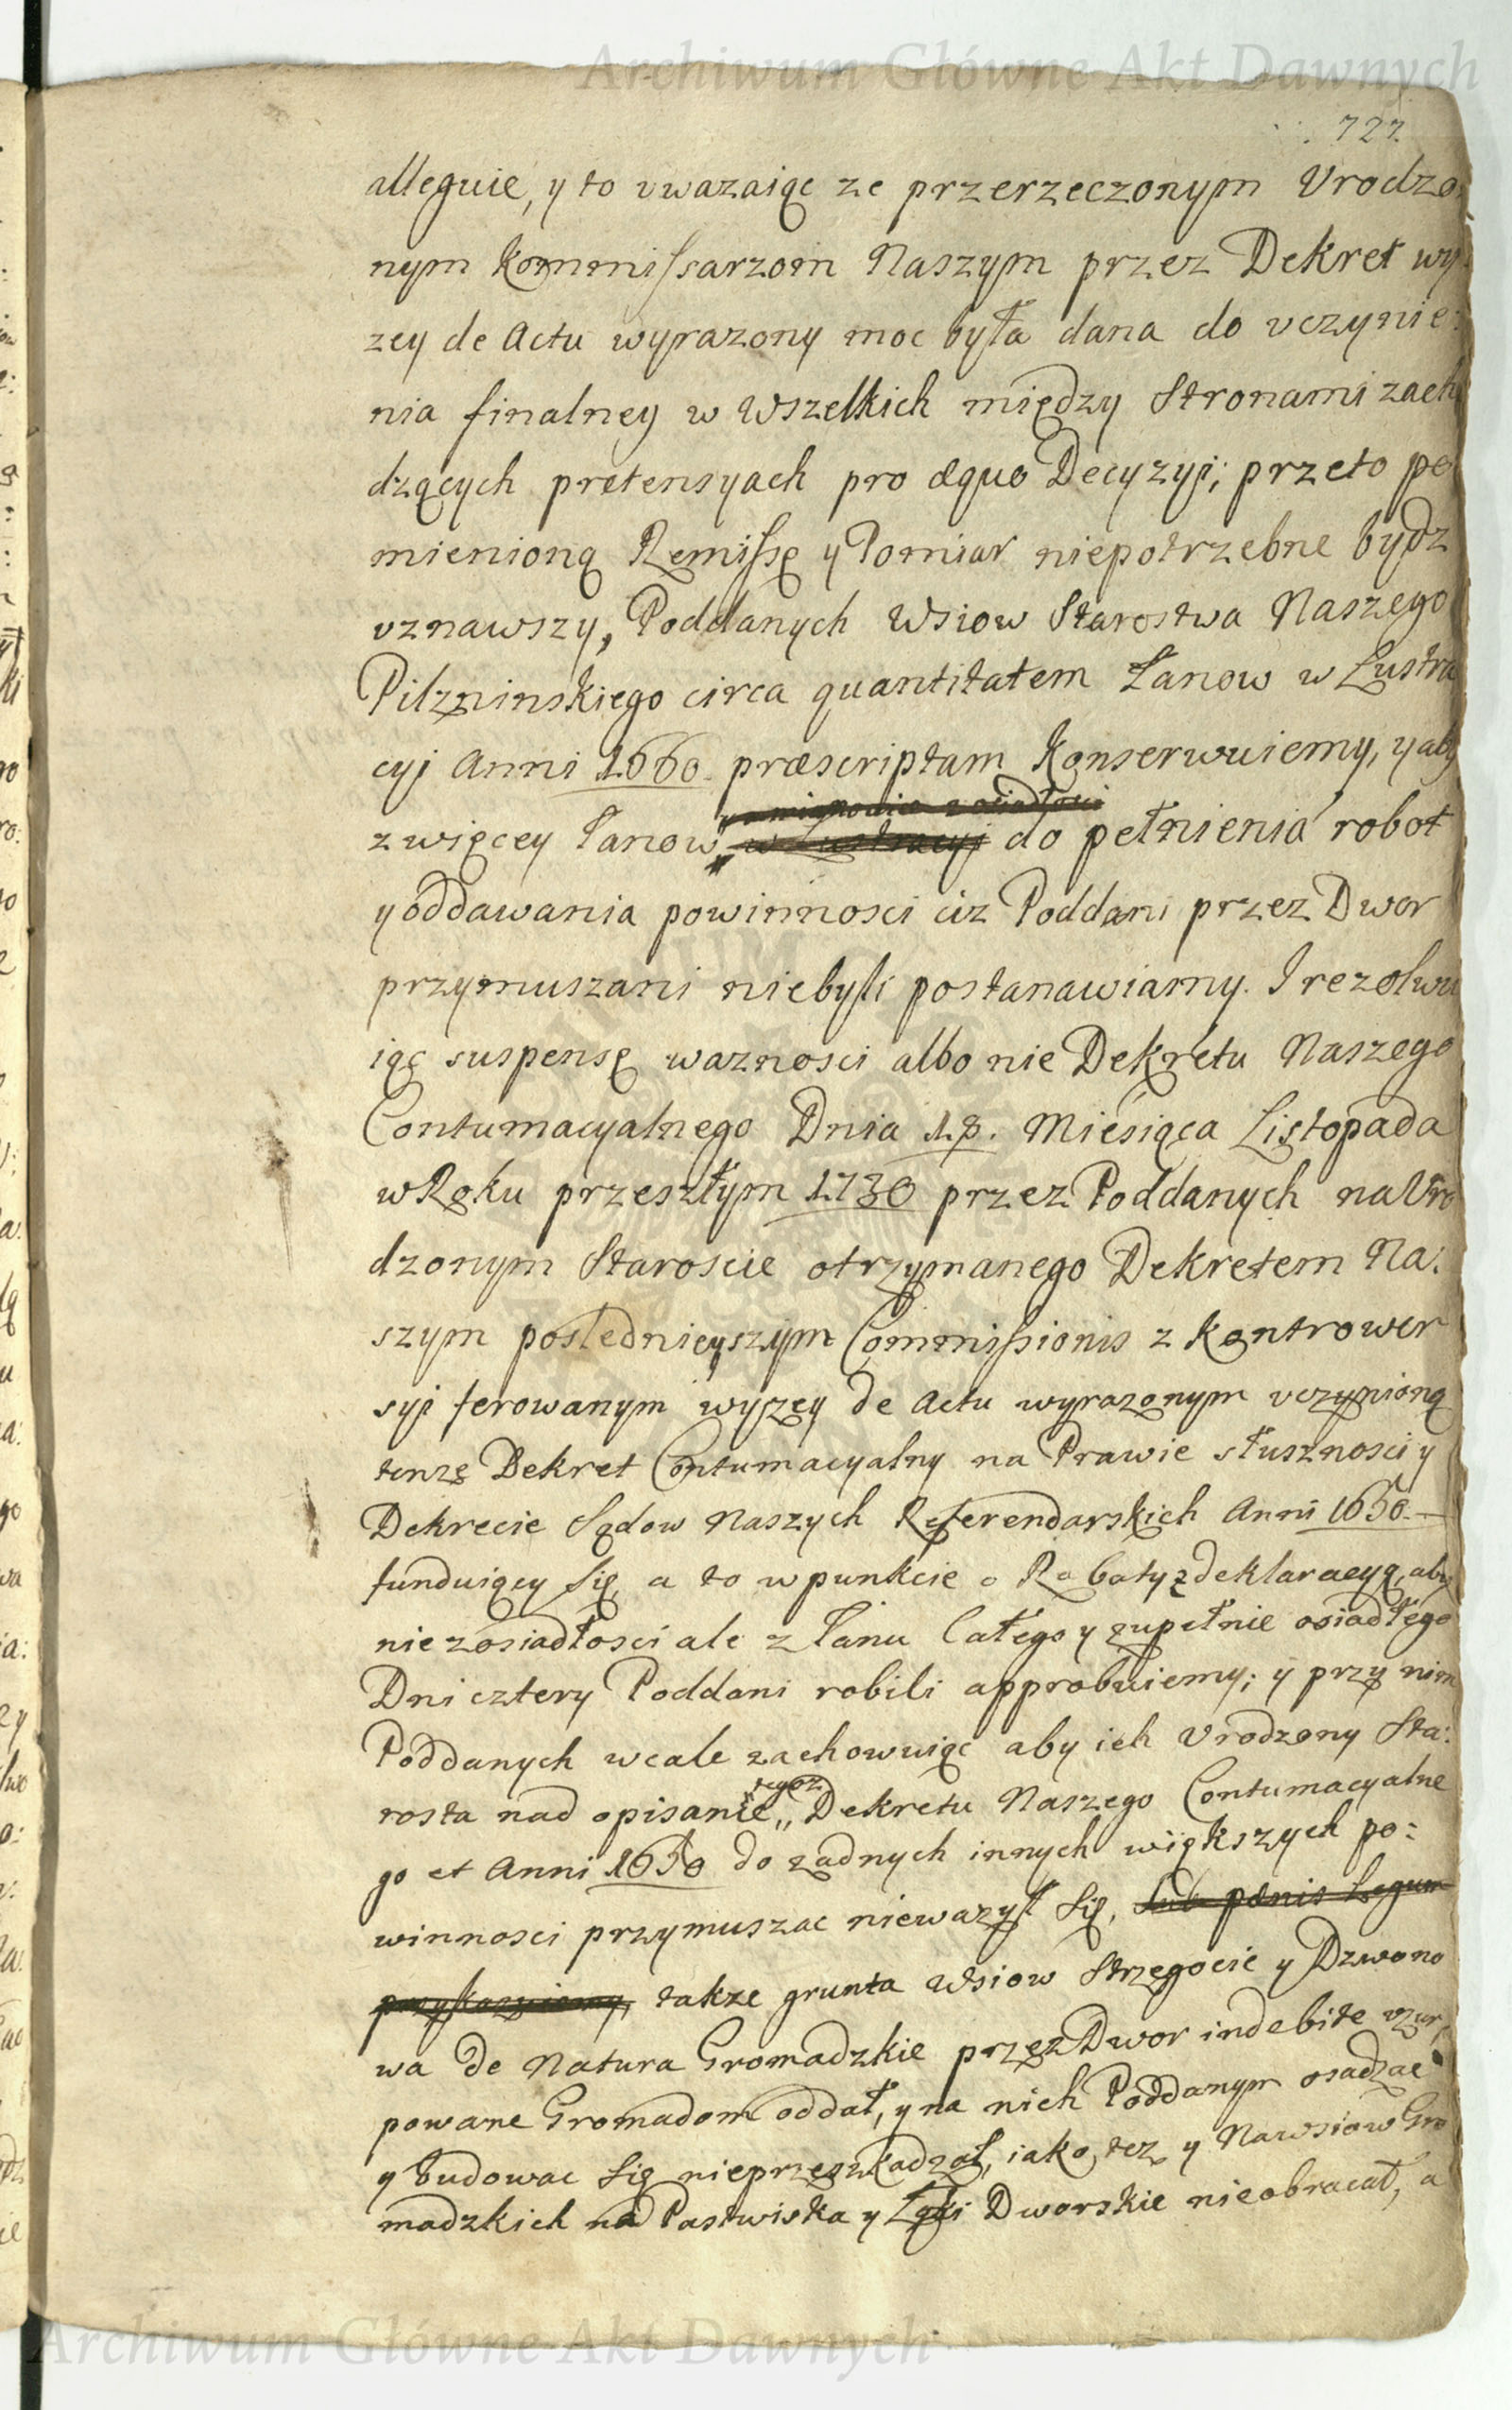 Archiwum Główne Akt Dawnych
727.
alleguie, y to uwazaiąc ze przerzeczonym Urodzo:
nym Kommissarzom Naszym przez Dekret wy
zey de Actu wyrazony moc była dana do uczynie:
nia finalney w Wszelkich między Stronami zacho
dzących pretensyach pro æquo Decyzyi; przeto po
mienioną Remissę y Pomiar niepotrzebne bydz
uznawszy, Poddanych Wsiow Starostwa Naszego
Pilzninskiego circa quantitatem Łanow w Lustra
cyi Anni 1660. præscriptam Konserwuiemy, y aby
z więcey Łanow do pełnienia robot
y oddawania powinnosci ciz Poddani przez Dwor
przymuszani niebyli postanawiamy. I rezolwu
iąc suspensę waznosci albo nie Dekretu Naszego
Contumacyalnego Dnia 18. Miesiąca Listopada
w Roku przeszłym 1730 przez Poddanych na Uro
dzonym Staroscie otrzymanego Dekretem Na:
szym poslednieyszym Commissionis z Kontrower
syi ferowanym wyzey de Actu wyrazonym uczynioną
tenze Dekret Contumacyalny na Prawie słusznosci y
Dekrecie Sądow Naszych Referendarskich Anni 1650.
funduiący się, a to w punkcie o Robaty z deklaracyą, aby
nie z osiadłosci ale z Łanu Całego y zupełnie osiadłego
Dni cztery Poddani robili approbuiemy; y przy nim
Poddanych wcale zachowuiąc aby ich Urodzony Sta:
rosta nad opisanie „tegoz„ Dekretu Naszego Contumacyalne
go et Anni 1650 do zadnych innych większych po:
winnosci przymuszac niewazył się, sub pænis Legum
przykazuiemy, takze grunta Wsiow Strzegocie y Dzwono
wa de Natura Gromadzkie przez Dwor indebite uzur,
powane Gromadom oddał, y na nich Poddanym osadzac
y budowac się nieprzeszkadzał, iako tez y Nawsiow Gro
madzkich na Pastwiska y Łąki Dworskie nieobracał, a
Archiwum Główne Akt Dawnych